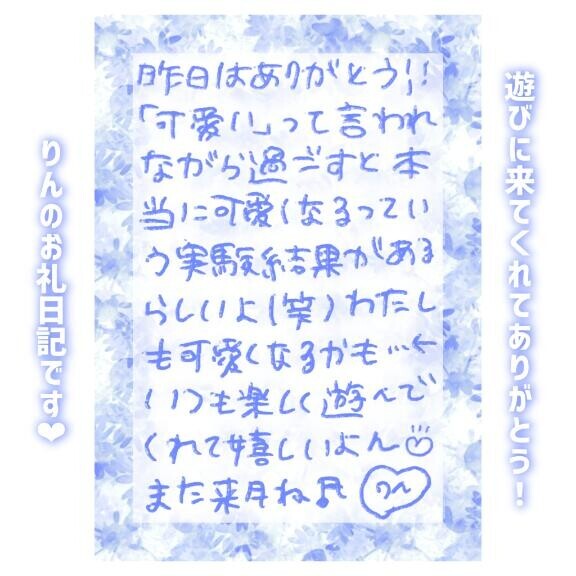 遊びに来てくれてありがとう！
昨日はありがとう!!
「可愛い」って言われ
ながら過ごすと本
当に可愛くなるってい
う実験結果がある
らしいよ(笑)わたし
も可愛くなるかも…く
いつも楽しく遊んで
くれて嬉しいよん
また来月ね♬
りん
りんのお礼日記です❤